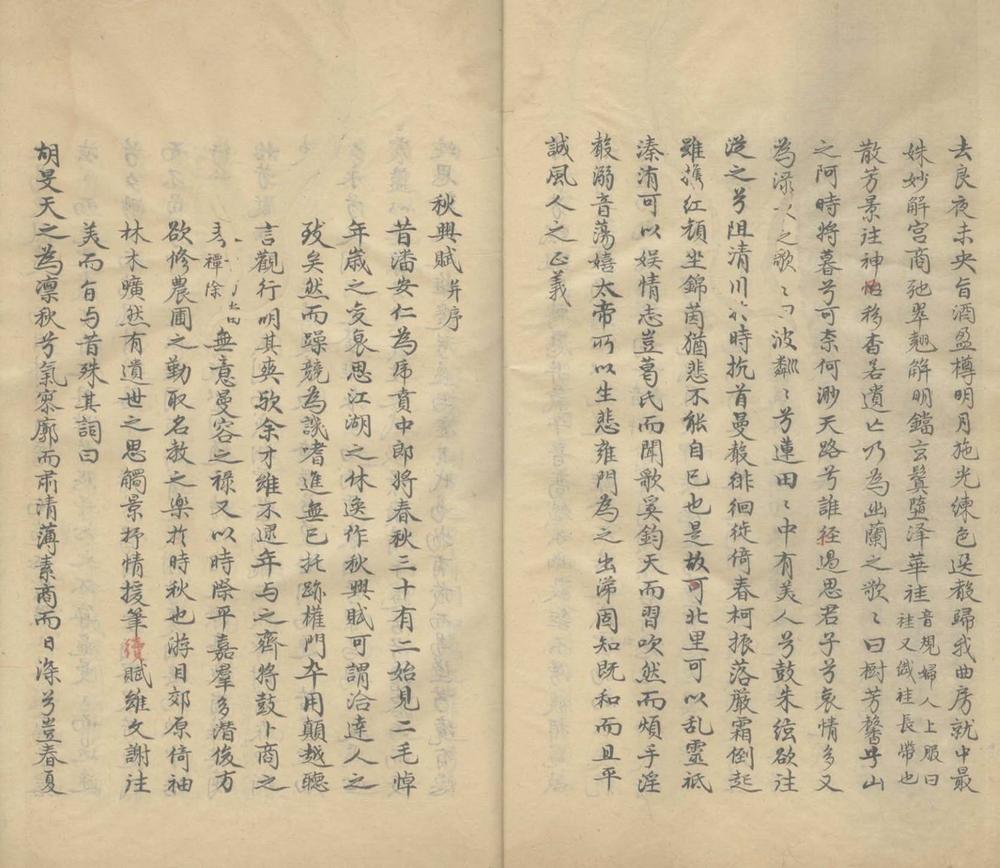 去良夜未央旨酒盈樽明月施光練色选聲歸我曲房就中最
姝妙解宮商弛翠翹解明鐺玄鬢墮澤華袿音規婦人上服曰袿又纖袿長帶也
散芳景注神移杳若遺亡乃為幽蘭之歌〻曰樹芳馨乎山
之阿時將暮兮可奈何渺天路兮誰徑過思君子兮哀情多又
為淥之歌〻曰波粼〻兮蓮田〻中有美人兮鼓朱絃欲往
從之兮阻清川於時抗首曼聲徘徊徙倚春柯振落嚴霜倒起
雖攜紅顏坐錦茵猶悲不能自已也是故可北里可以乱靈祇
溱洧可以娱情志豈葛氏而聞歌奚鈞天而習吹然而煩手淫
聲溺音蕩嬉大帝所以生悲雍門為之出涕固知既和而且平
誠風人之正義
秋興賦并序
昔潘安仁為虎賁中郎將春秋三十有二始見二毛悼
年歲之变衰思江湖之休逸作秋興賦可謂洽達人之
致矣然而躁競為譏嗜進無已托跡權門卒用顛越聽
言觀行明其爽歟余才維不逮年与之齊將鼓卜商之
禪除無意曼容之祿又以時際平嘉羣多潛俊方
欲修農圃之勤取名教之樂於時秋也游目郊原倚袖
林木曠然有遺世之思觸景抒情援筆續賦雖文謝往
美而旨与昔殊其詞曰
胡旻天之為凛秋兮氣寥廓而肅清薄素商而日深兮豈春夏